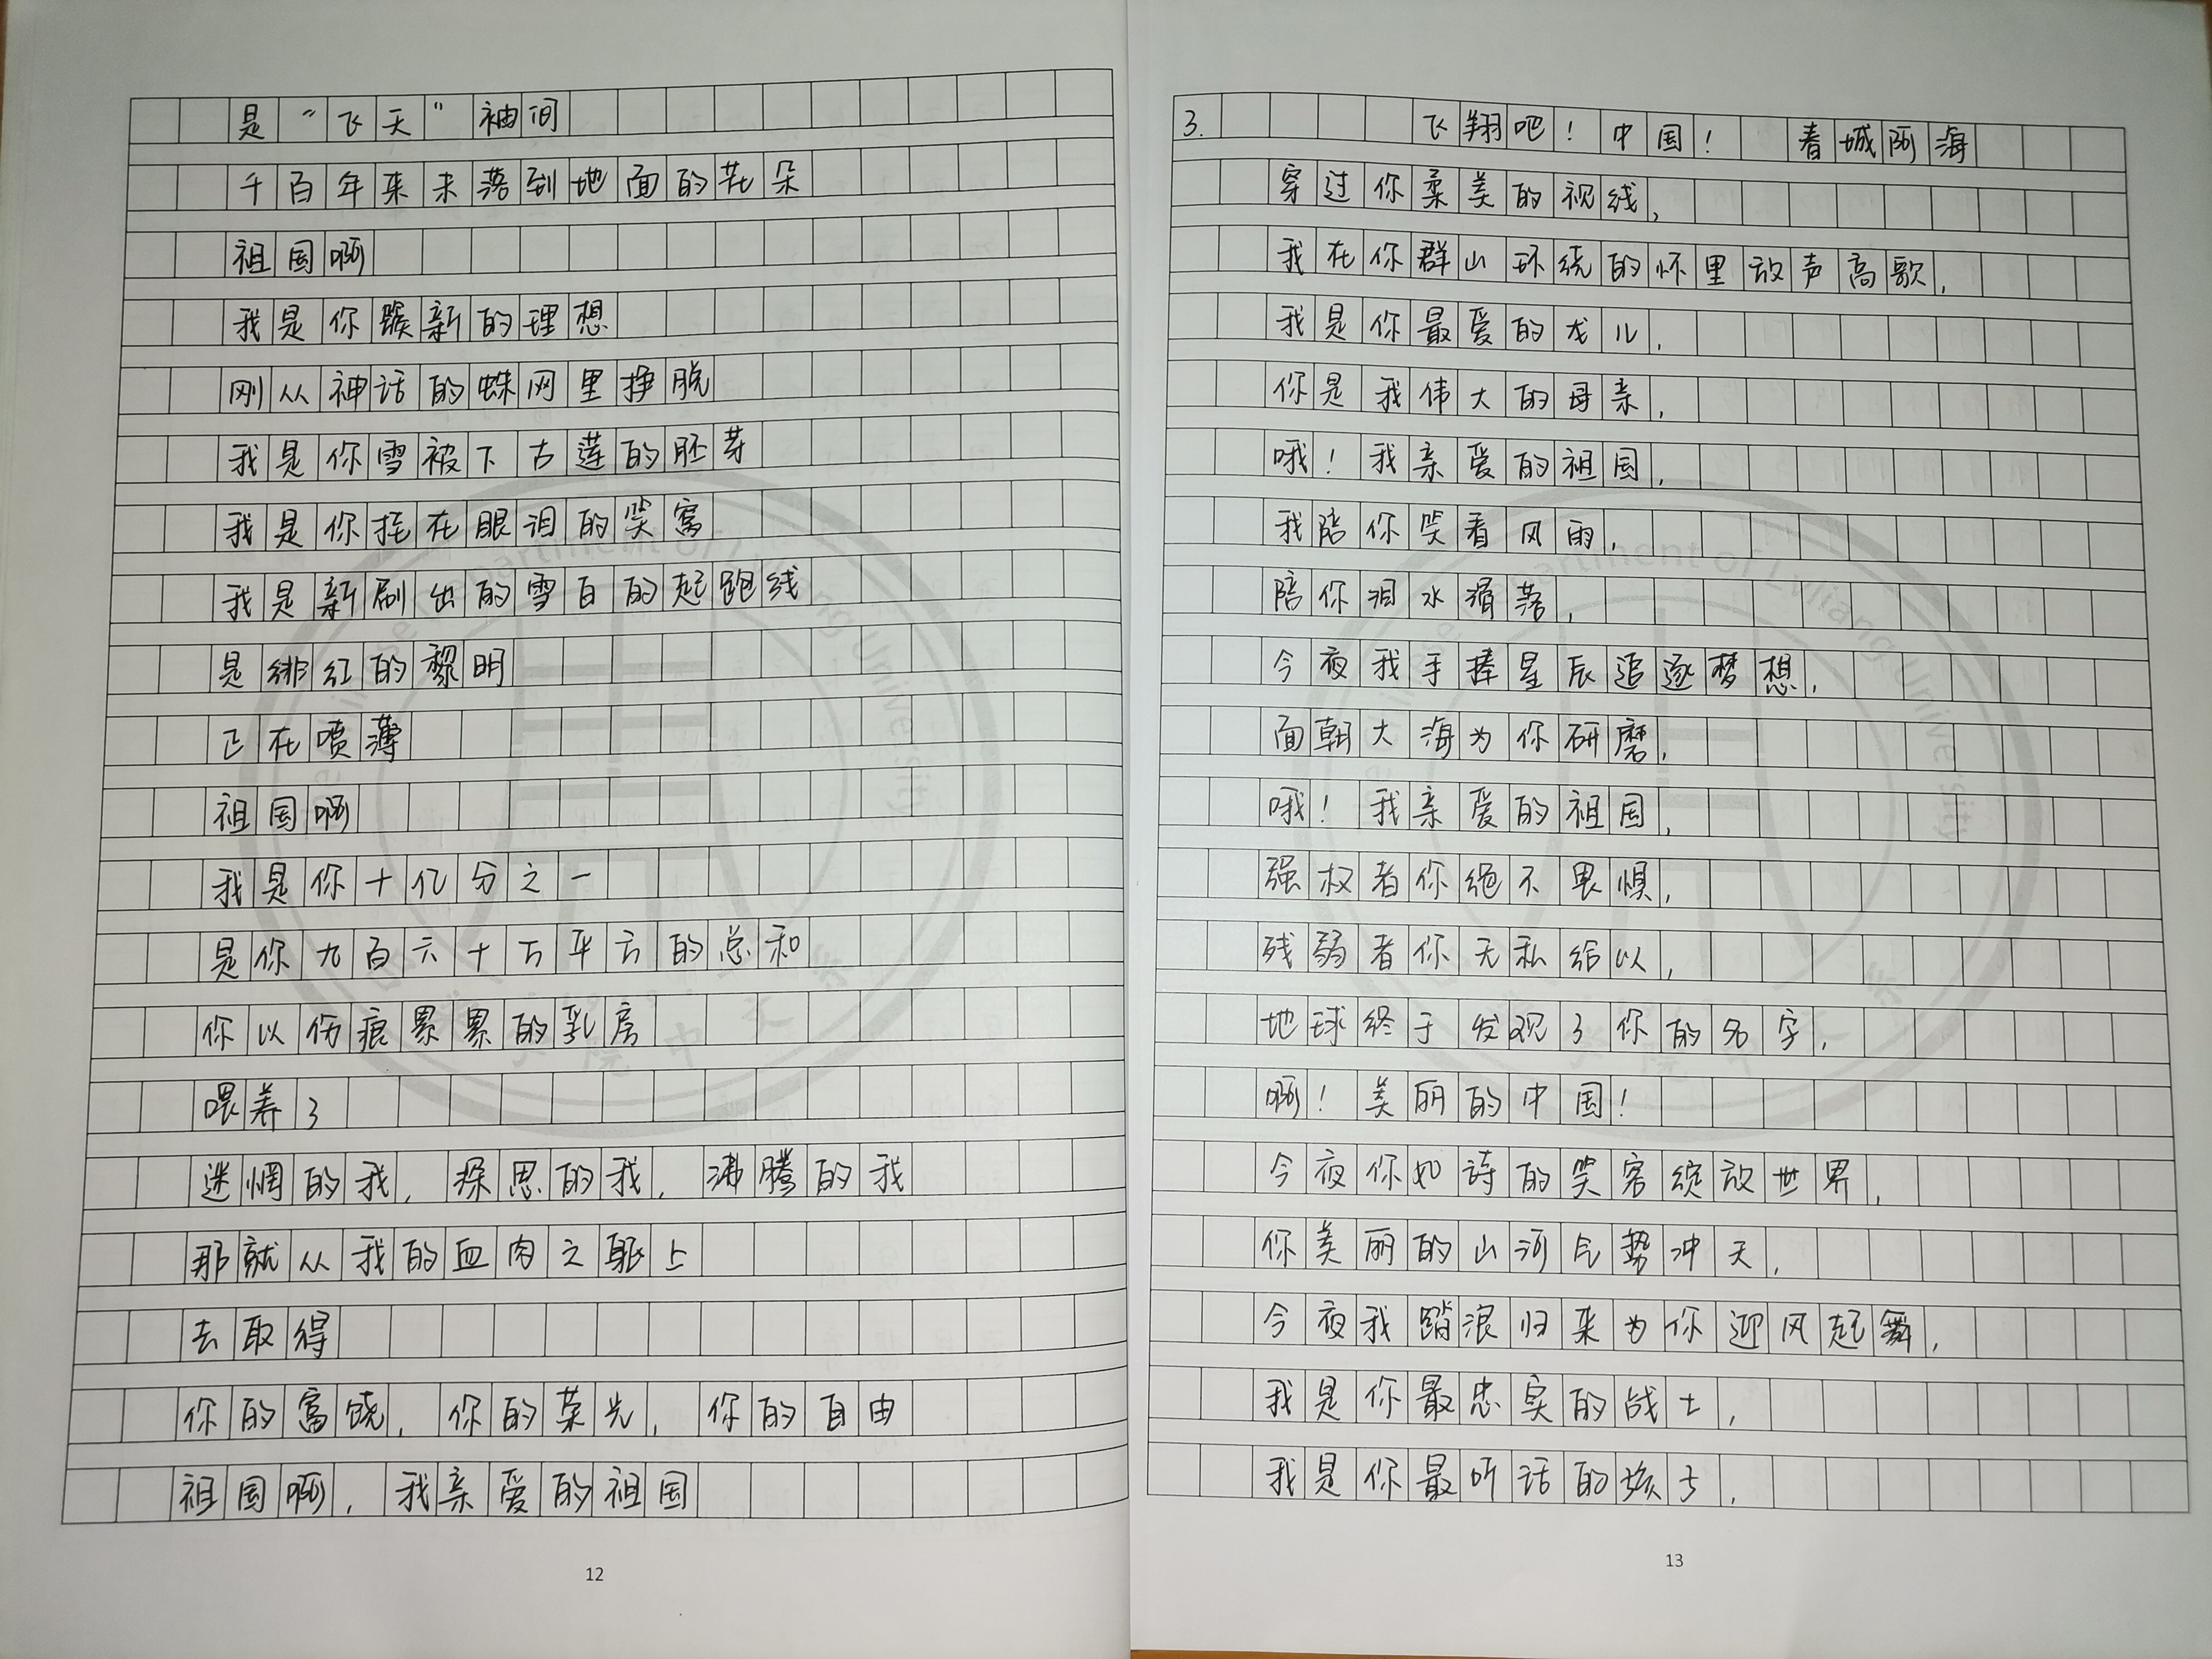 是“飞天”袖间
千百年来未落到地面的花朵
祖国啊
我是你簇新的理想
刚从神话的蛛网里挣脱
我是你雪被下古莲的胚芽
我是你挂在眼泪的笑窝
我是新刷出的雪白的起跑线
是绯红的黎明
正在喷薄
祖国啊
我是你十亿分之一
是你九百六十万平方的总和
你以伤痕累累的乳房
喂养了
迷惘的我，深思的我，沸腾的我
那就从我的血肉之躯上
去取得
你的富饶，你的荣光，你的自由
祖国啊，我亲爱的祖国
12
3. 飞翔吧！中国！ 春城阿海
穿过你柔美的视线，
我在你群山环绕的怀里放声高歌，
我是你最爱的龙儿，
你是我伟大的母亲，
哦！我亲爱的祖国，
我陪你笑看风雨，
陪你泪水滑落，
今夜我手捧星辰追逐梦想，
面朝大海为你研磨，
哦！我亲爱的祖国，
强权者你绝不畏惧，
残弱者你无私给以，
地球终于发现了你的名字，
啊！美丽的中国！
今夜你如诗的笑容绽放世界，
你美丽的山河气势冲天，
今夜我踏浪归来为你迎风起舞，
我是你最忠实的战士，
我是你最听话的孩子，
13